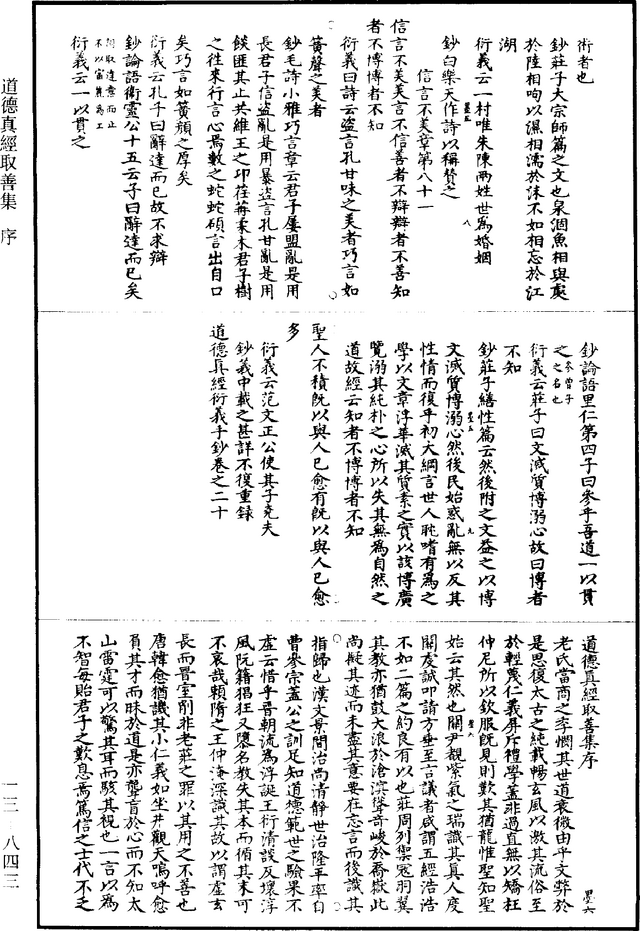 術者也
鈔莊子大宗師篇之文也泉涸魚相與處
於陸相呴以濕相濡於沫不如相忘於江
湖
衍義云一村唯朱陳兩姓世爲婚姻
鈔白樂天作詩以稱贊之
信言不美章第八十一
信言不美美言不信善者不辯辯者不善知
者不博博者不知
衍義曰詩云盜言孔甘味之美者巧言如
簧聲之美者
鈔毛詩小雅巧言章云君子屢盟亂是用
長君子信盜亂是用暴盜言孔甘亂是用
餤匪其止共維王之邛荏苒柔木君子樹
之往來行言心焉數之蛇蛇碩言出自口
矣巧言如簧顏之厚矣
衍義云孔子曰辭達而已故不求辯
鈔論語衛靈公十五云子曰辭達而已矣
詞取達意而止
不以富麗爲工
衍義云一以貫之
鈔論語里仁第四子曰參乎吾道一以貫
之參曾子
之名也
衍義云莊子曰文滅質博溺心故曰博者
不知
鈔莊子繕性篇云然後附之文益之以博
文滅質博溺心然後民始惑亂無以反其
性情而復乎初大綱言世人耽嗜有爲之
學以文章浮華滅其質素之實以該博廣
覽溺其純朴之心所以失其無爲自然之
道故經云知者不博博者不知
聖人不積旣以與人已愈有旣以與人已愈
多
衍義云范文正公使其子堯夫
鈔義中載之甚詳不復重録
道德眞經衍義手鈔卷之二十
道德眞經取善集序 墨六
老氏當商之季憫其世道衰微由乎文弊於
是思復太古之純載暢玄風以激其流俗至
於輕蔑仁義屏斥禮學蓋非過直無以矯枉
仲尼所以欽服旣見則歎其猶龍惟聖知聖
始云其然也關尹觀紫氣之瑞識其眞人度
關虔誠叩請方垂至言議者咸謂五經浩浩
不如二篇之約良有以也莊周列禦冠羽翼
其教亦猶鼓大浪於滄溟聳奇峻於喬嶽此
尚擬其迹而未盡其意要在忘言而後識其
指歸也漢文景間治尚清靜世治隆平率自
曹參宗蓋公之訓足知道德範世之驗果不
虛云惜乎晉朝流爲浮誕王衍清談反壞淳
風阮籍猖狂又隳名教失其本而循其末可
不哀哉賴隋之王仲淹深識其故以謂虛玄
長而晉室削非老莊之罪以其用之不善也
唐韓愈猶譏其小仁義如坐井觀天嗚呼愈
負其才而昧於道是亦聾盲於心而不知太
山雷霆可以驚其耳而駭其視也一言以爲
不智每貽君子之歎息焉篤信之士代不乏
道德眞經取善集 序
一三 八四三